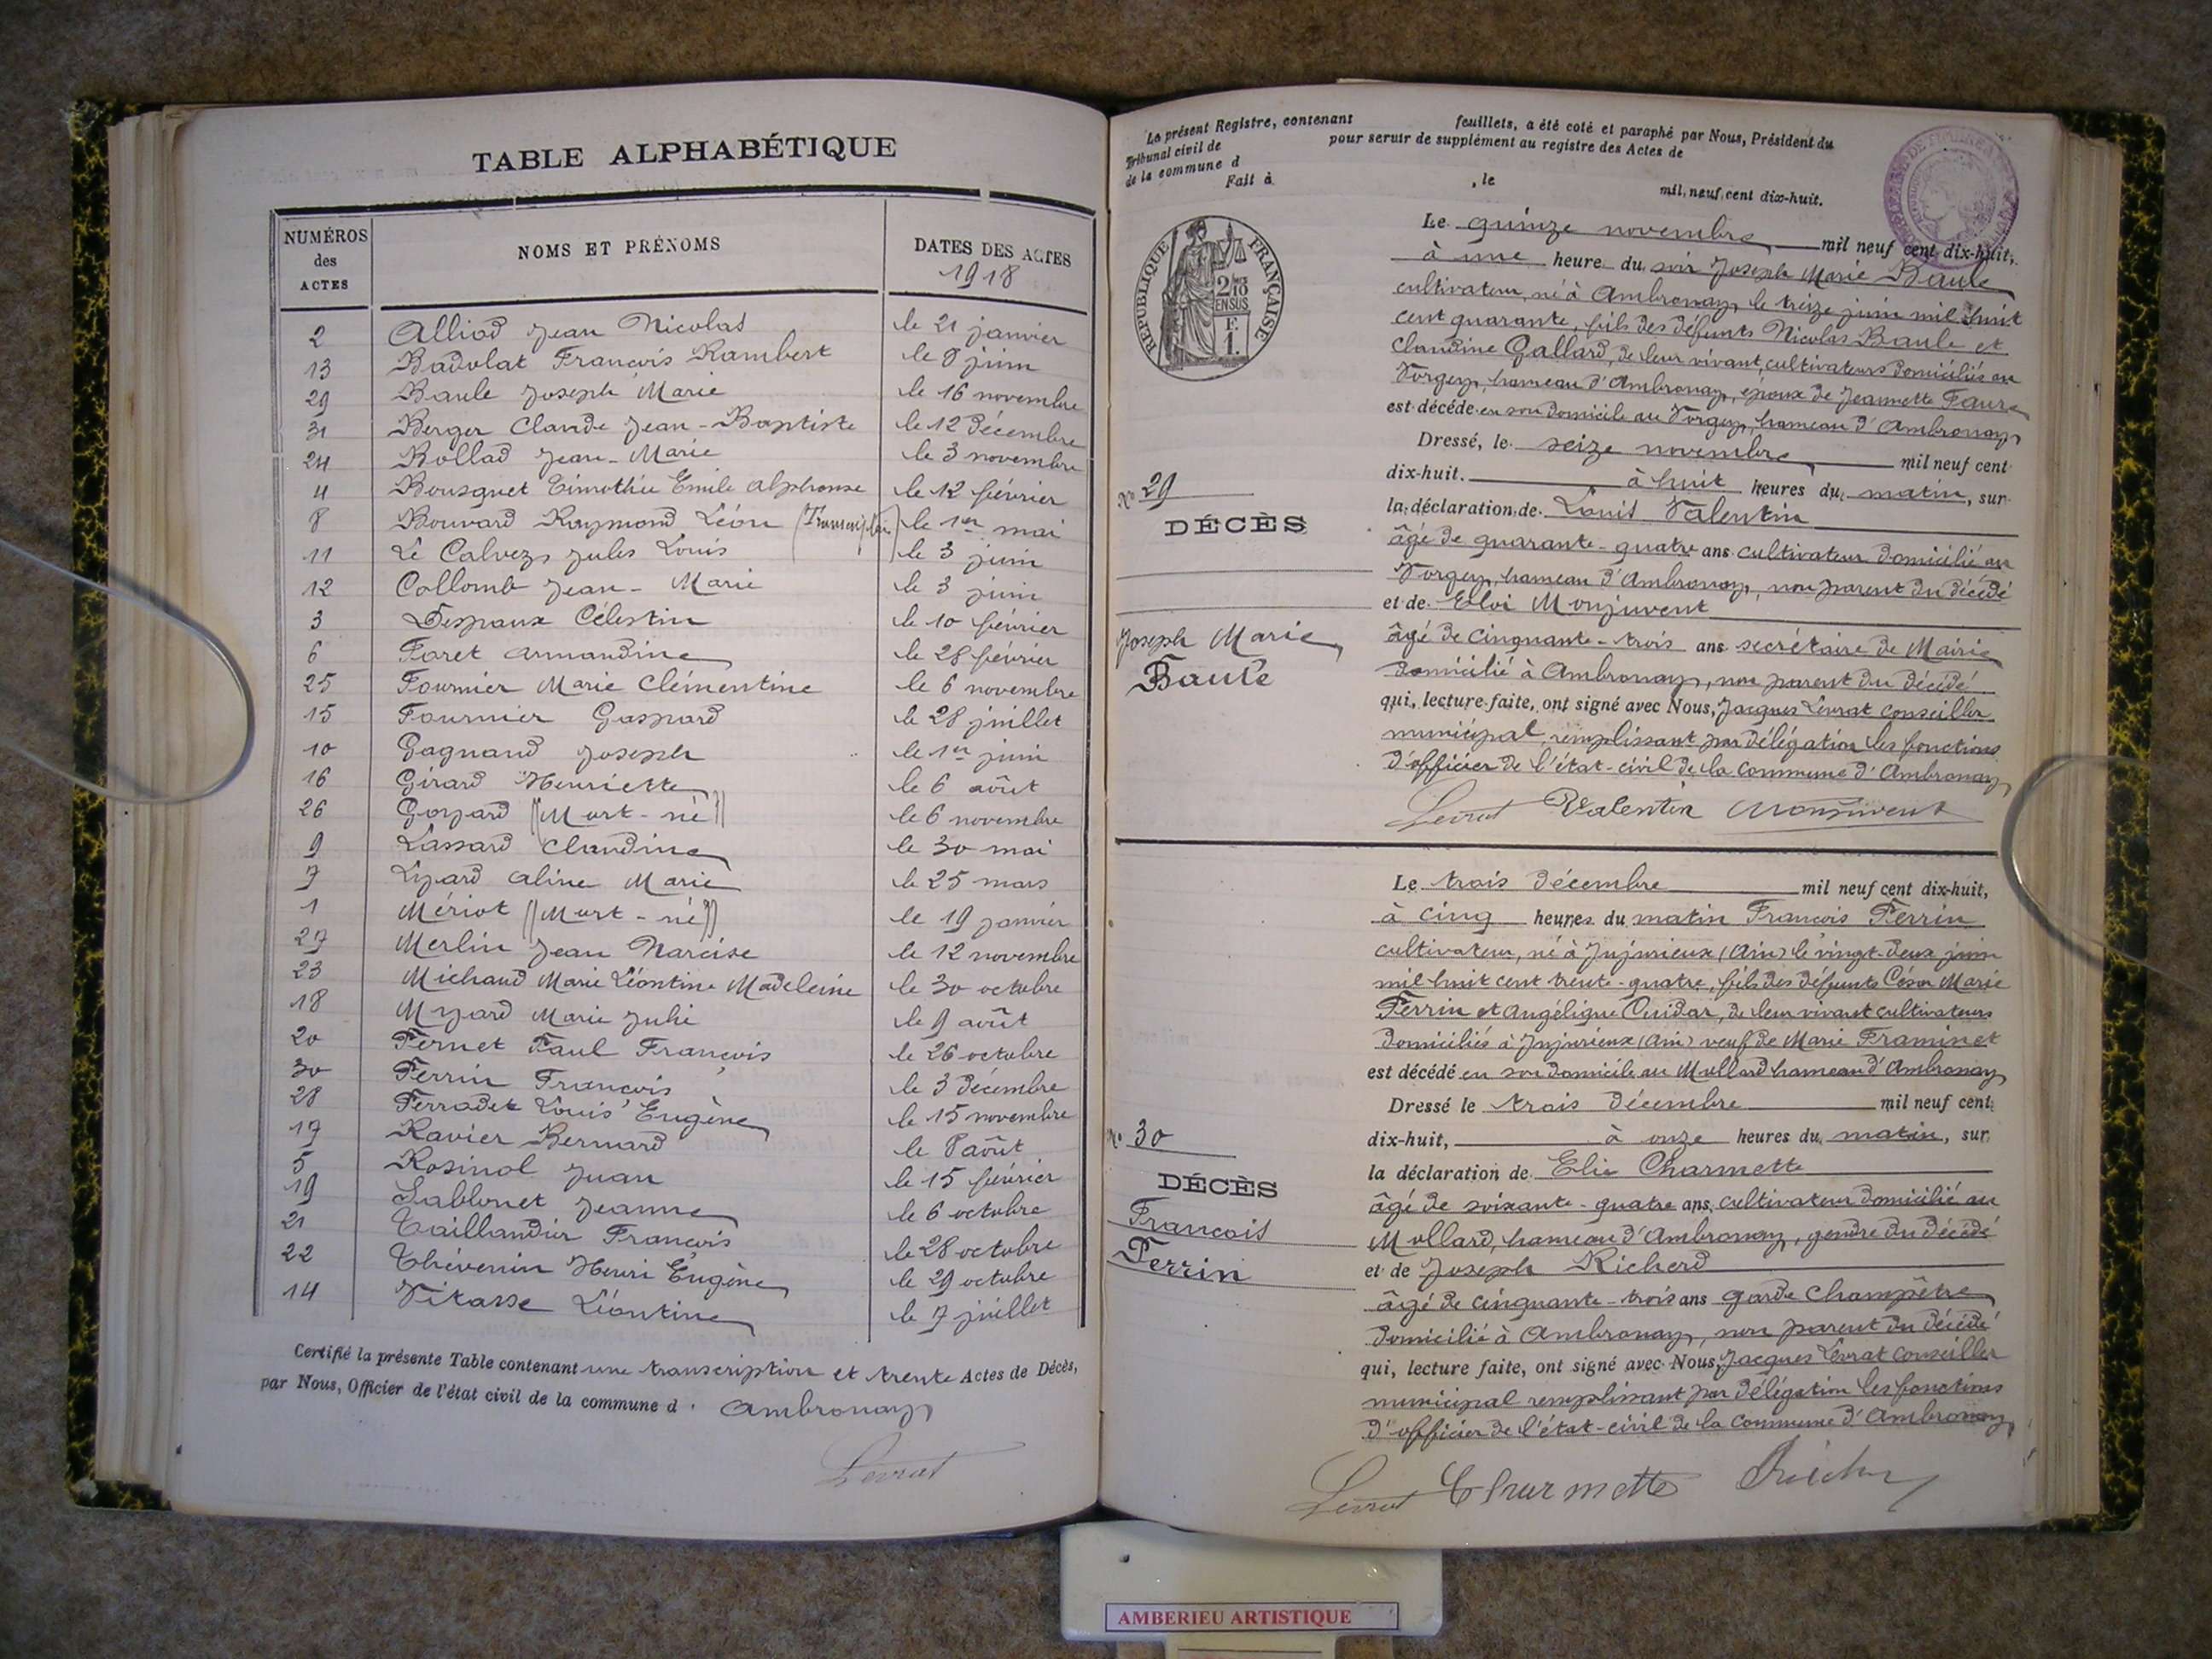 TABLE ALPHABÉTIQUE
NUMÉROS des ACTES
NOMS ET PRÉNOMS
DATES DES ACTES
1918
2 Alliod Jean Nicolas le 21 janvier
13 Badolat François Rambert le 8 juin
29 Baule Joseph Marie le 16 novembre
31 Berger Claude Jean-Baptiste le 12 décembre
24 Bollad Jean-Marie le 3 novembre
4 Bousquet Timothée Emile Alphonse le 12 février
8 Bouvard Raymond Léon (Transcription) le 1er mai
11 Le Calvez Jules Louis le 3 juin
12 Collomb Jean-Marie le 3 juin
3 Despaux Célestin le 10 février
6 Foret Armandine le 28 février
25 Fournier Marie Clémentine le 6 novembre
15 Fournier Gaspard le 28 juillet
10 Gagnand Joseph le 1er juin
16 Girard Henriette le 6 août
26 Goyard (Mort-né) le 6 novembre
9 Lassard Claudine le 30 mai
7 Lyard Aline Marie le 25 mars
1 Mériot (Mort-né) le 19 janvier
27 Merlin Jean Narcise le 12 novembre
23 Michaud Marie Léontine Madeleine le 30 octobre
18 Myard Marie Julie le 9 août
20 Pernet Paul François le 26 octobre
30 Perrin François le 3 décembre
28 Perradet Louis Eugène le 15 novembre
17 Ravier Bernard le 8 août
5 Rosinol Juan le 15 février
19 Sablonet Jeanne le 6 octobre
21 Taillandier François le 28 octobre
22 Thévenin Henri Eugène le 29 octobre
14 Vitasse Léontine le 7 juillet
Certifié la présente Table contenant une transcription et trente Actes de Décès,
par Nous, Officier de l'état civil de la commune d Ambronay
Levrat
Le présent Registre, contenant feuillets, a été coté et paraphé par Nous, Président du
Tribunal civil de pour servir de supplément au registre des Actes de
de la commune d
Fait à , le mil neuf cent dix-huit.
RÉPUBLIQUE FRANÇAISE
Le quinze novembre mil neuf cent dix-huit,
à une heure du soir Joseph Marie Baule
cultivateur, né à Ambronay le treize juin mil huit
cent quarante, fils des défunts Nicolas Baule et
Claudine Gallard, de leur vivant cultivateurs domiciliés au
Vorgey, hameau d'Ambronay, époux de Jeannette Faure
est décédé en son domicile au Vorgey, hameau d'Ambronay
Dressé, le seize novembre mil neuf cent
dix-huit. à huit heures du matin, sur
la déclaration de Louis Valentin
âgé de quarante-quatre ans cultivateur domicilié au
Vorgey, hameau d'Ambronay, non parent du décédé
et de Eloi Monjuvent
âgé de cinquante-trois ans secrétaire de Mairie
domicilié à Ambronay, non parent du décédé
qui, lecture faite, ont signé avec Nous, Jacques Levrat conseiller
municipal, remplissant par délégation les fonctions
d'officier de l'état-civil de la commune d'Ambronay
Levrat Valentin Monjuvent
No 29
DÉCÈS
Joseph Marie
Baule
Le trois décembre mil neuf cent dix-huit,
à cinq heures du matin François Perrin
cultivateur, né à Jujurieux (Ain) le vingt-deux juin
mil huit cent trente-quatre, fils des défunts César Marie
Perrin et Angélique Cuidar, de leur vivant cultivateurs
domiciliés à Jujurieux (Ain) veuf de Marie Framinet
est décédé en son domicile au Mollard hameau d'Ambronay
Dressé le trois décembre mil neuf cent
dix-huit, à onze heures du matin, sur
la déclaration de Elie Charmette
âgé de soixante-quatre ans, cultivateur domicilié au
Mollard, hameau d'Ambronay, gendre du décédé
et de Joseph Richerd
âgé de cinquante-trois ans garde champêtre
domicilié à Ambronay, non parent du décédé
qui, lecture faite, ont signé avec Nous, Jacques Levrat conseiller
municipal remplissant par délégation les fonctions
d'officier de l'état-civil de la commune d'Ambronay
Levrat Charmette
No 30
DÉCÈS
François
Perrin
AMBERIEU ARTISTIQUE